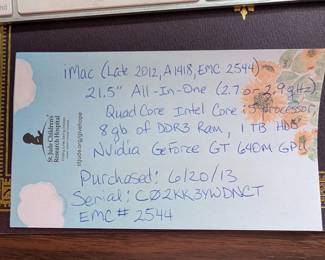 iMac (Late 2012, A1418, EMC 2544)
21.5" All-In-One (2.7 or 2.9 gHz)
Quad Core Intel Core i5 Processor,
8gb of DDR3 Ram, 1 TB HDD
Nvidia GeForce GT 640M GPU
Purchased: 6/20/13
Serial: C02KK3YWDNCT
EMC# 2544
St. Jude Children's
Research Hospital
stjude.org/givehope